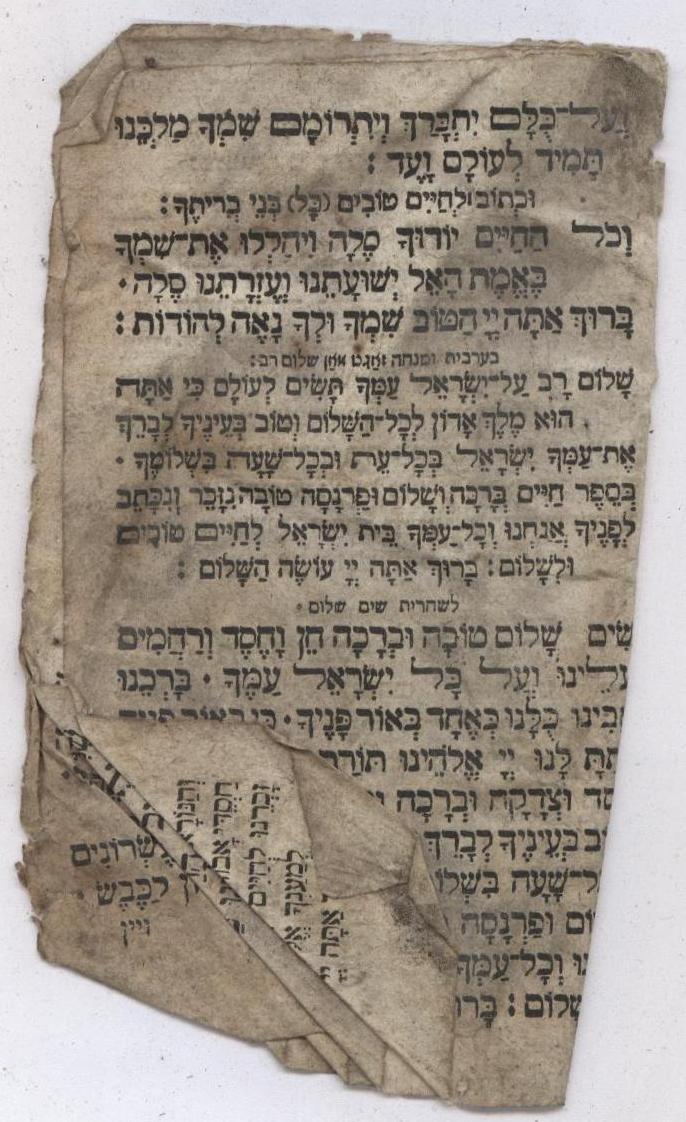 וְעַל־כֻּלָּם יִתְבָּרַךְ וְיִתְרוֹמַם שִׁמְךָ מַלְכֵּנוּ
תָּמִיד לְעוֹלָם וָעֶד :
וּכְתוֹב לְחַיִּים טוֹבִים (כָּל) בְּנֵי בְרִיתֶךָ :
וְכֹל הַחַיִּים יוֹדוּךָ סֶלָה וִיהַלְלוּ אֶת־שִׁמְךָ
בֶּאֱמֶת הָאֵל יְשׁוּעָתֵנוּ וְעֶזְרָתֵנוּ סֶלָה ·
בָּרוּךְ אַתָּה יְיָ הַטּוֹב שִׁמְךָ וּלְךָ נָאֶה לְהוֹדוֹת :
בערבית ומנחה זאגט מאן שלום רב :
שָׁלוֹם רָב עַל־יִשְׂרָאֵל עַמְּךָ תָּשִׂים לְעוֹלָם כִּי אַתָּה
הוּא מֶלֶךְ אָדוֹן לְכָל־הַשָּׁלוֹם וְטוֹב בְּעֵינֶיךָ לְבָרֵךְ
אֶת־עַמְּךָ יִשְׂרָאֵל בְּכָל־עֵת וּבְכָל־שָׁעָה בִּשְׁלוֹמֶךָ ·
בְּסֵפֶר חַיִּים בְּרָכָה וְשָׁלוֹם וּפַרְנָסָה טוֹבָה נִזָּכֵר וְנִכָּתֵב
לְפָנֶיךָ אֲנַחְנוּ וְכָל־עַמְּךָ בֵּית יִשְׂרָאֵל לְחַיִּים טוֹבִים
וּלְשָׁלוֹם : בָּרוּךְ אַתָּה יְיָ עוֹשֵׂה הַשָּׁלוֹם :
לשחרית שים שלום ·
שִׂים שָׁלוֹם טוֹבָה וּבְרָכָה חֵן וָחֶסֶד וְרַחֲמִים
עָלֵינוּ וְעַל כָּל יִשְׂרָאֵל עַמֶּךָ · בָּרְכֵנוּ
אָבִינוּ כֻּלָּנוּ כְּאֶחָד בְּאוֹר פָּנֶיךָ · כִּי בְאוֹר פָּנֶיךָ
תַּתָּ לָּנוּ יְיָ אֱלֹהֵינוּ תּוֹרַת
סֶד וּצְדָקָה וּבְרָכָה
וֹב בְּעֵינֶיךָ לְבָרֵךְ
ל־שָׁעָה בִּשְׁלוֹ
וֹם וּפַרְנָסָה
נוּ וְכָל־עַמְּךָ
שָׁלוֹם : בָּרוּ
זָכְרֵנוּ לְחַיִּים
חַסְדֵי אָבוֹת
וְהַנּוֹרָא
לְמַעַנְךָ
אַתָּה יְיָ
עֶשְׂרוֹנִים
לַכֶּבֶשׂ
ויין